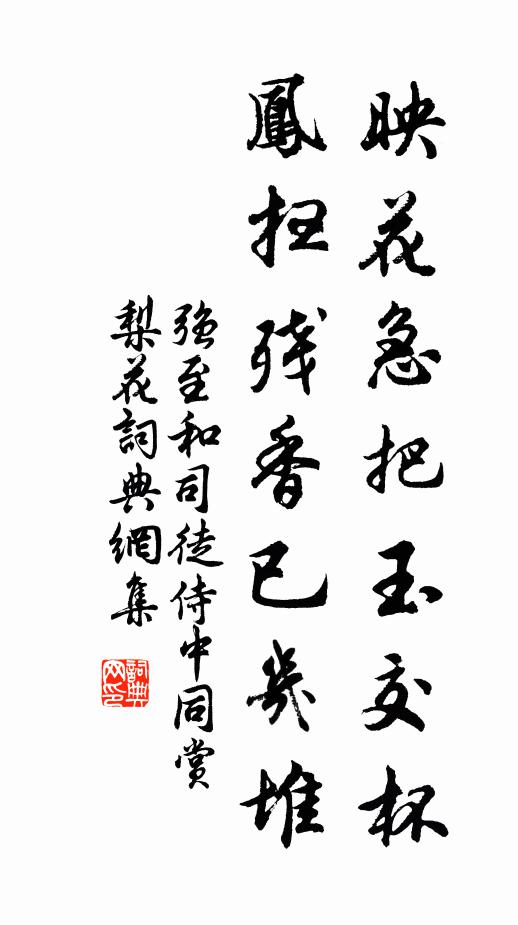 映花急把玉交杯
鳳扫残香已幾堆
强至和司徒侍中同赏
梨花詞典網集
詞典
网印